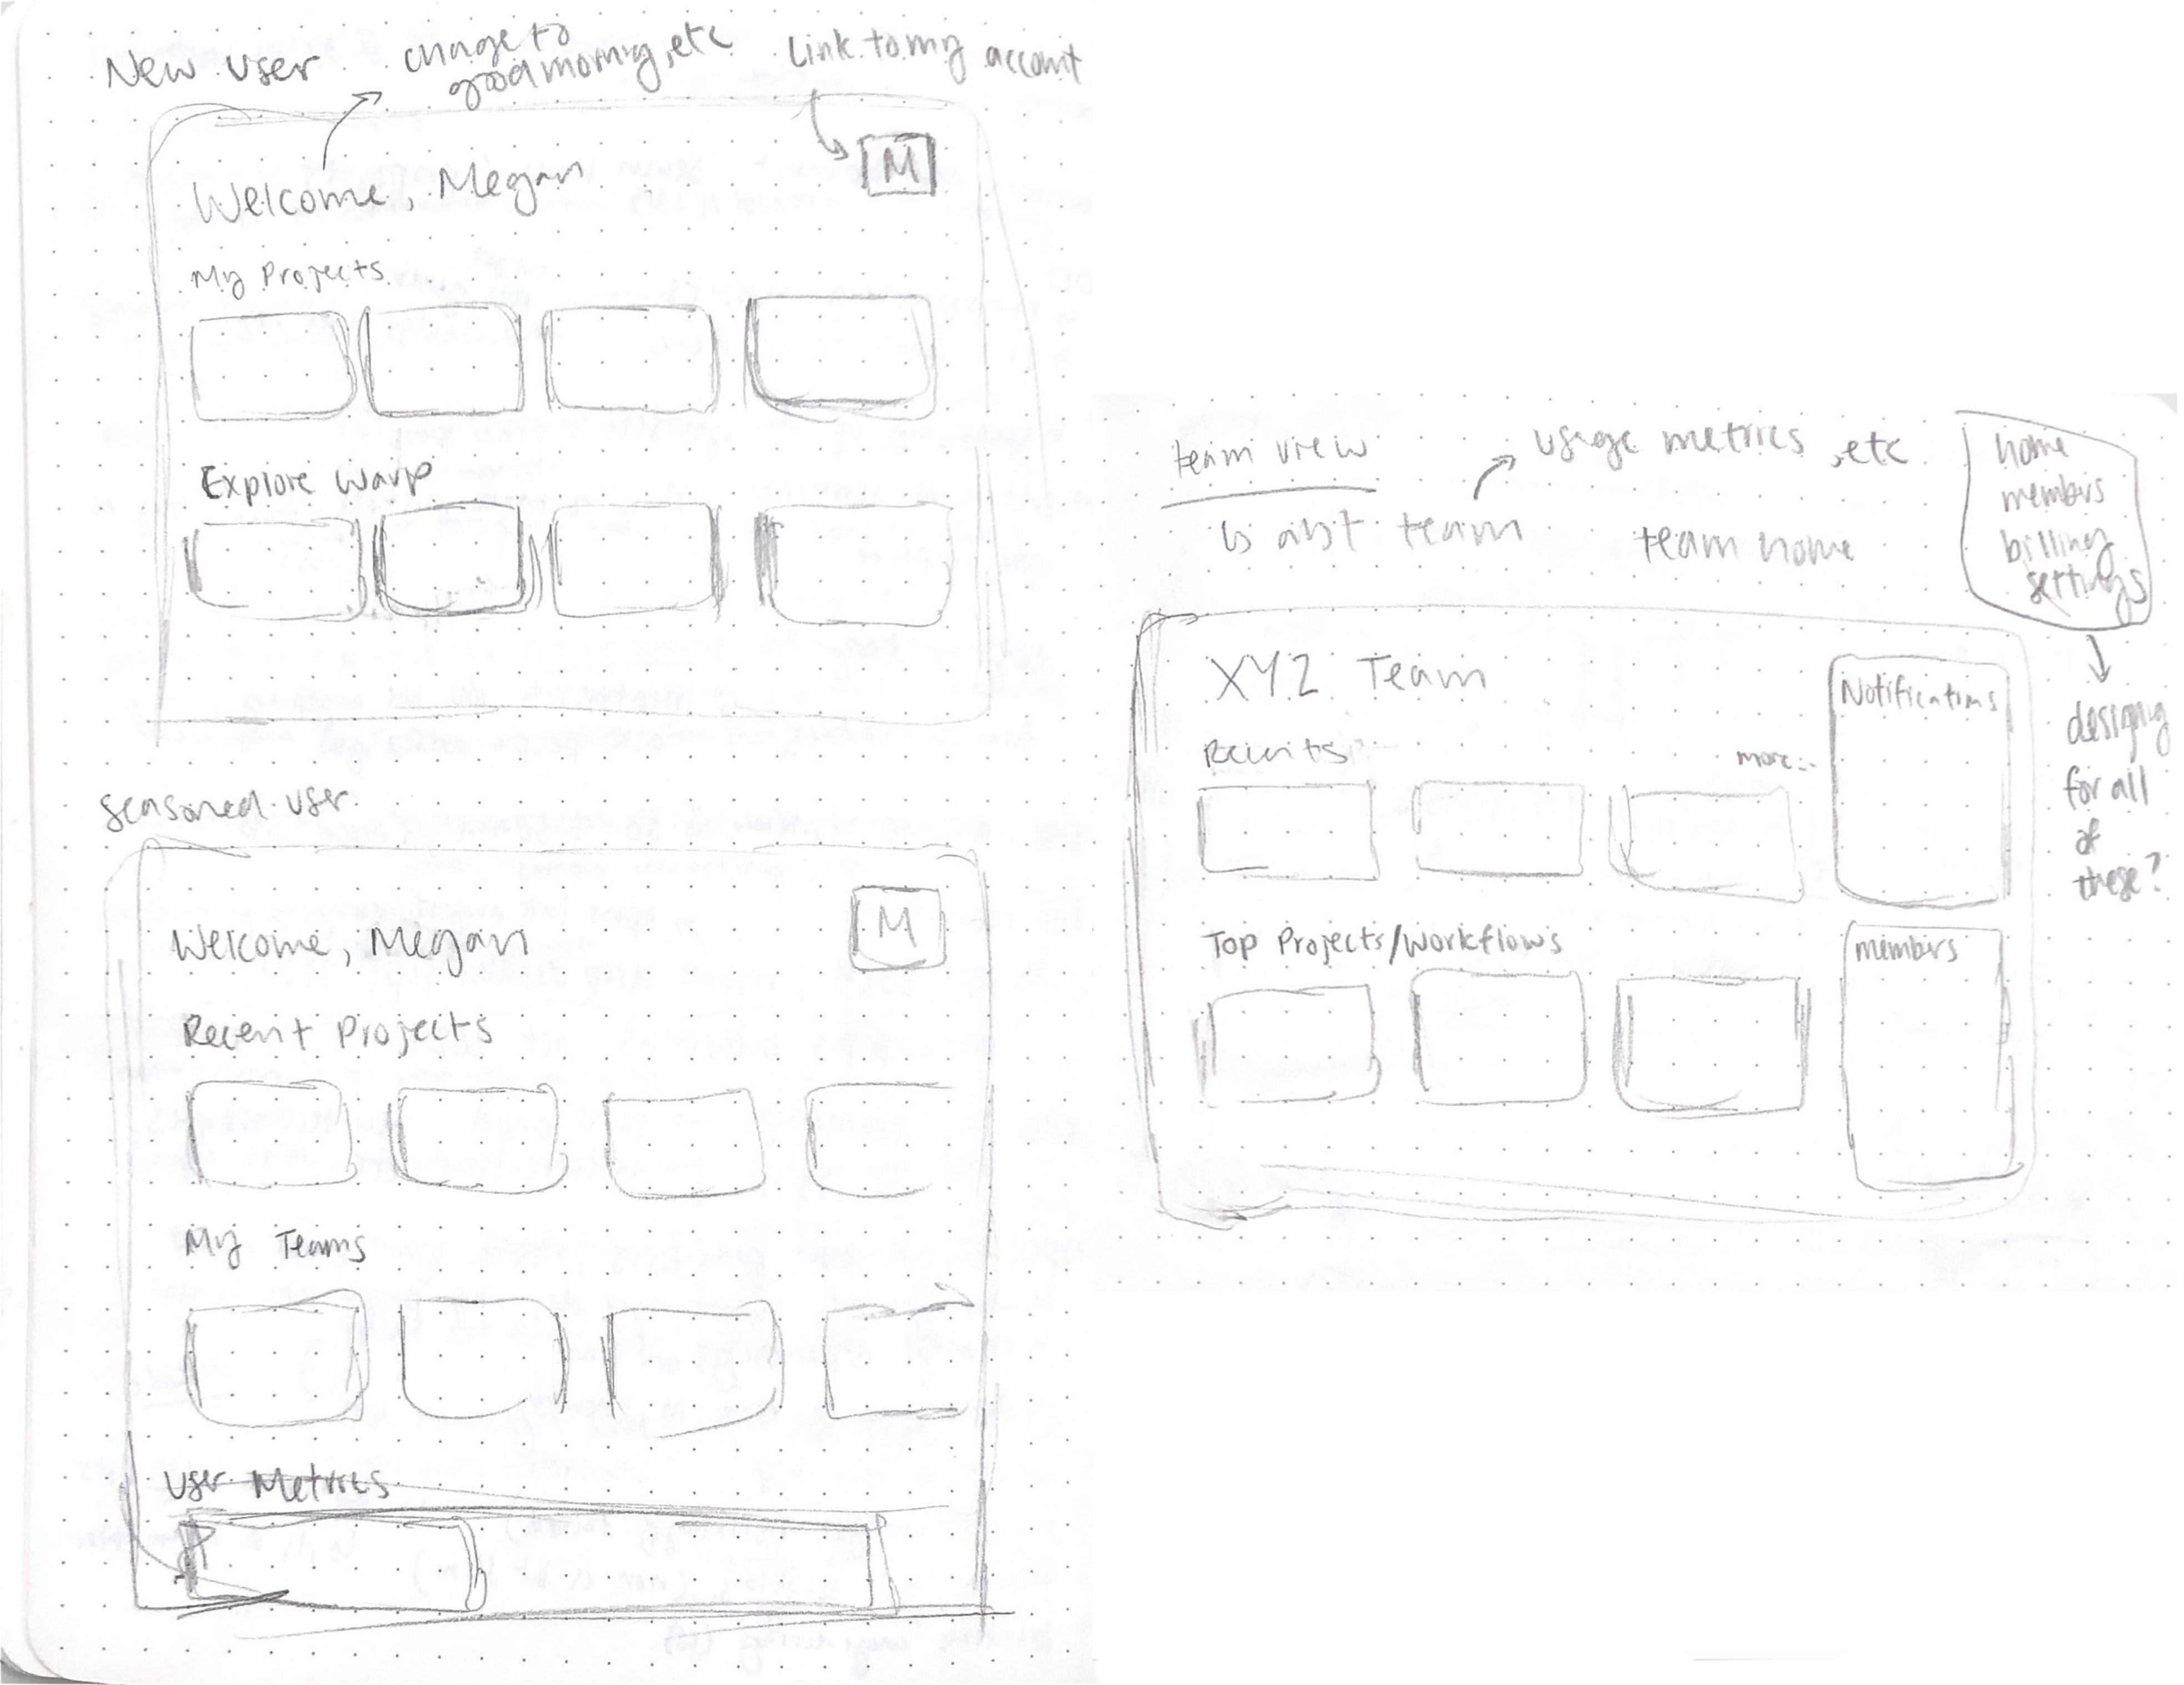 New user
change to
good morning, etc
Link to my account
Welcome, Megan
M
My Projects
Explore Warp
seasoned user
Welcome, Megan
M
Recent Projects
My Teams
User Metrics
team view
usage metrics, etc
is abt team
team home
home
members
billing
settings
designing
for all
of
these?
XYZ Team
Notifications
Recents
more...
Top Projects/Workflows
members